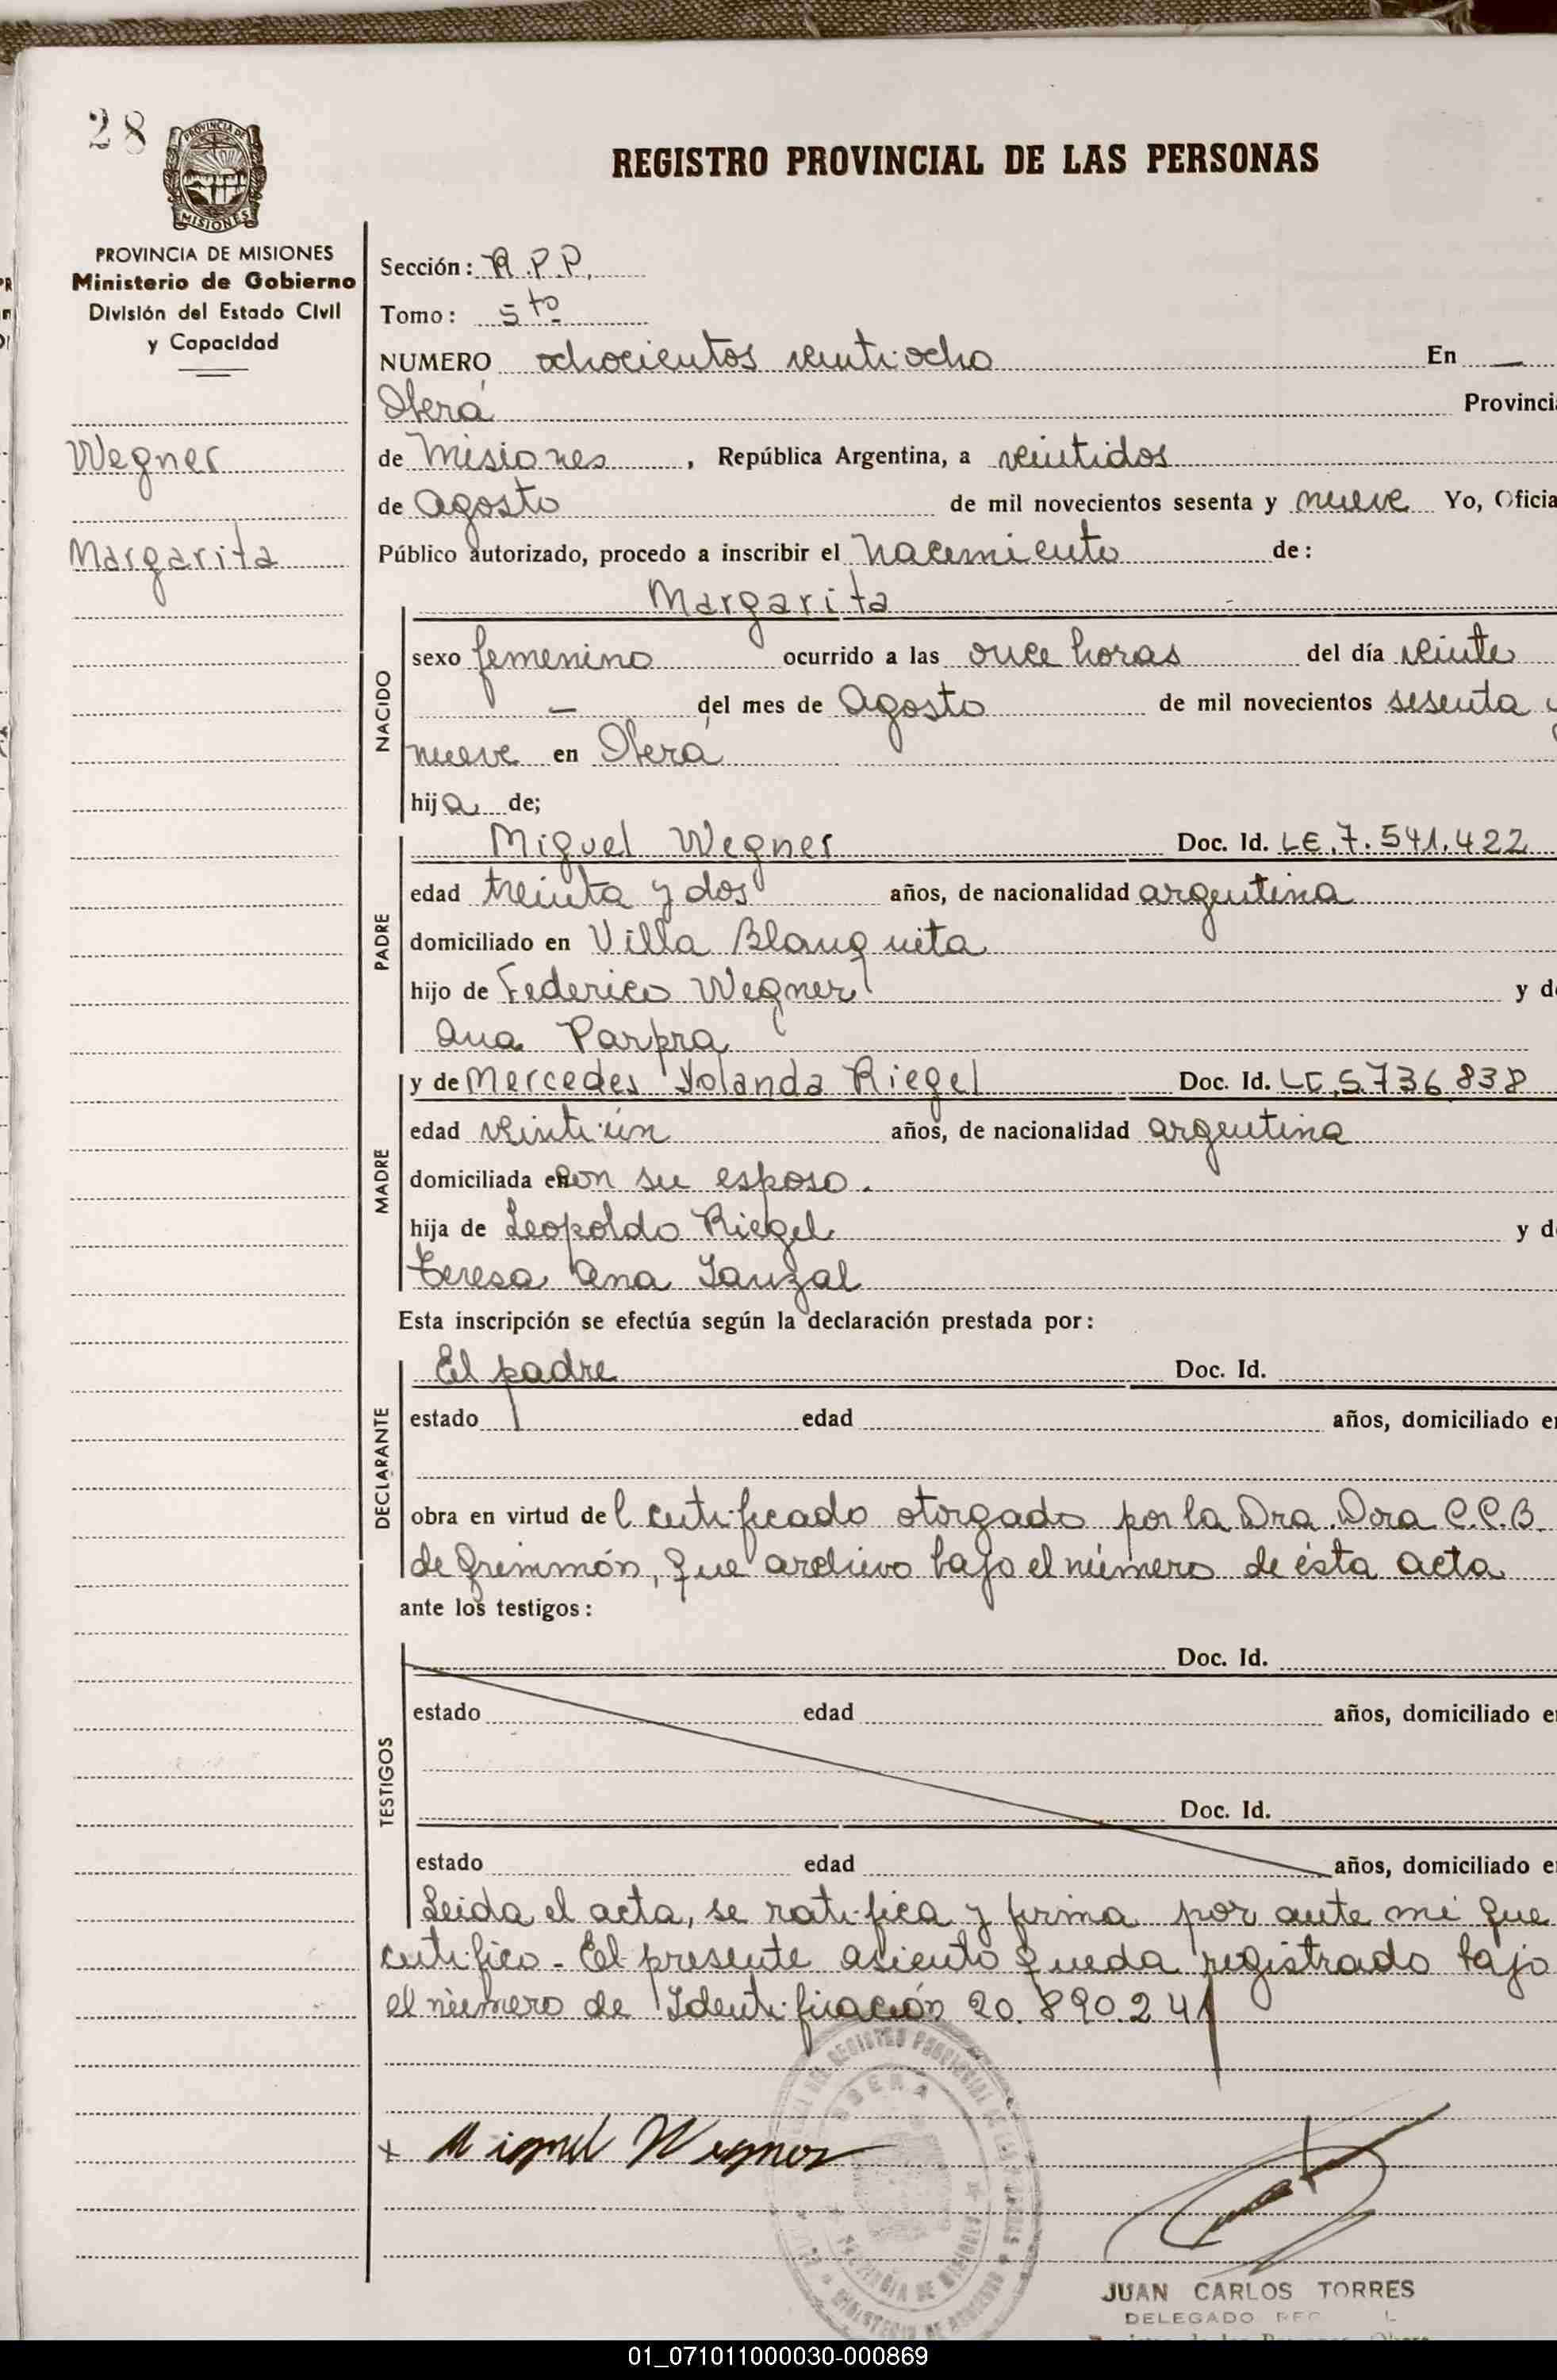 28
PROVINCIA DE
MISIONES
REGISTRO PROVINCIAL DE LAS PERSONAS
PROVINCIA DE MISIONES
Ministerio de Gobierno
División del Estado Civil
y Capacidad
Wegner
Margarita
Sección: R.P.P.
Tomo: 5to
NUMERO ochocientos veintiocho En —
Oberá Provincia
de Misiones, República Argentina, a veintidos
de Agosto de mil novecientos sesenta y nueve Yo, Oficia
Público autorizado, procedo a inscribir el nacimiento de:
Margarita
NACIDO
sexo femenino ocurrido a las once horas del día veinte
— del mes de Agosto de mil novecientos sesenta y
nueve en Oberá
hija de;
PADRE
Miguel Wegner Doc. Id. LE.7.541.422
edad treinta y dos años, de nacionalidad argentina
domiciliado en Villa Blanquita
hijo de Federico Wegner y de
Ana Parpra
MADRE
y de Mercedes Yolanda Riegel Doc. Id. LC.5.736.838
edad veintiún años, de nacionalidad argentina
domiciliada en con su esposo.
hija de Leopoldo Riegel y de
Teresa Ana
Esta inscripción se efectúa según la declaración prestada por:
DECLARANTE
El padre Doc. Id.
estado edad años, domiciliado en
obra en virtud del certificado otorgado por la Dra. Dora C.C.B.
de que archivo bajo el número de ésta acta
ante los testigos:
TESTIGOS
Doc. Id.
estado edad años, domiciliado en
Doc. Id.
estado edad años, domiciliado e
Leida el acta, se ratifica y firma por ante mi que
certifico - El presente asiento queda registrado bajo
el número de Identificación 20.890.241
x Miguel Wegner
OBERA
JUAN CARLOS TORRES
DELEGADO
01_071011000030-000869